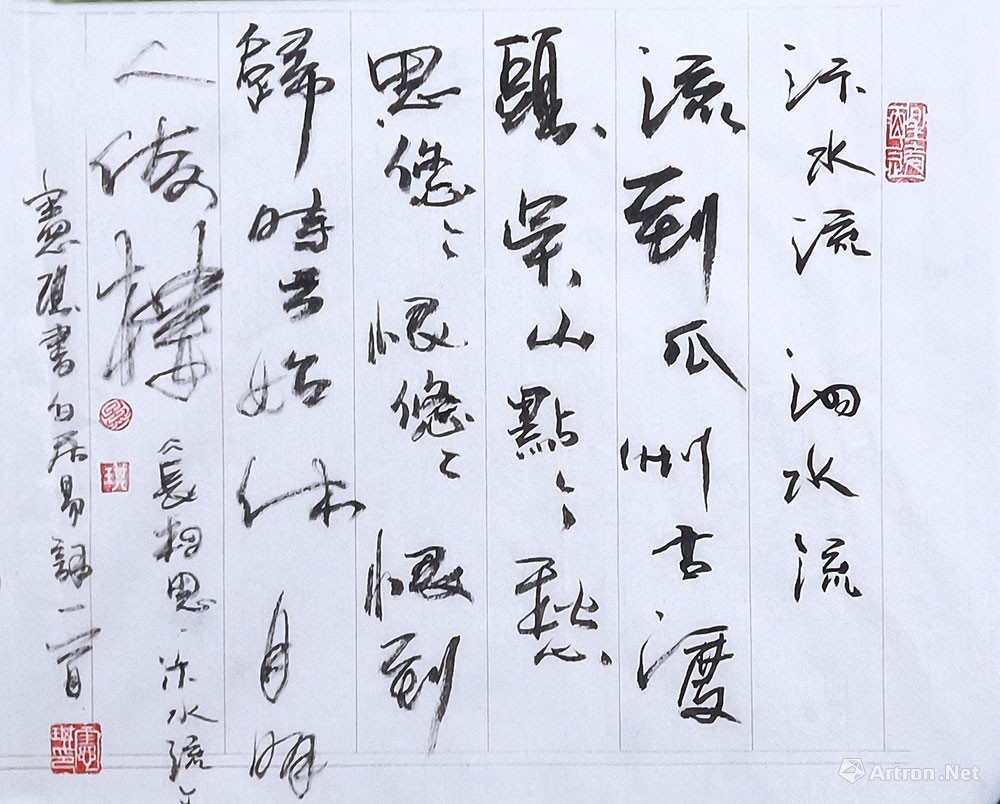 汴水流 泗水流
流到瓜州古渡
頭吳山點々愁
思悠々恨悠々恨到
歸時方始休 月明
人倚樓
長相思·汴水流
憲琪書白居易詞一首
琪
憲琪印
Artron.Net